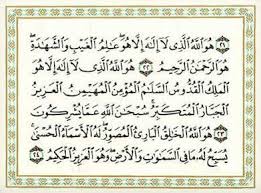 ٢١ هُوَ ٱللَّهُ ٱلَّذِى لَآ إِلَٰهَ إِلَّا هُوَ عَٰلِمُ ٱلْغَيْبِ وَٱلشَّهَٰدَةِ
هُوَ ٱلرَّحْمَٰنُ ٱلرَّحِيمُ ٢٢ هُوَ ٱللَّهُ ٱلَّذِى لَآ إِلَٰهَ إِلَّا هُوَ
ٱلْمَلِكُ ٱلْقُدُّوسُ ٱلسَّلَٰمُ ٱلْمُؤْمِنُ ٱلْمُهَيْمِنُ ٱلْعَزِيزُ
ٱلْجَبَّارُ ٱلْمُتَكَبِّرُ سُبْحَٰنَ ٱللَّهِ عَمَّا يُشْرِكُونَ
٢٣ هُوَ ٱللَّهُ ٱلْخَٰلِقُ ٱلْبَارِئُ ٱلْمُصَوِّرُ لَهُ ٱلْأَسْمَآءُ ٱلْحُسْنَىٰ
يُسَبِّحُ لَهُۥ مَا فِى ٱلسَّمَٰوَٰتِ وَٱلْأَرْضِ وَهُوَ ٱلْعَزِيزُ ٱلْحَكِيمُ ٢٤